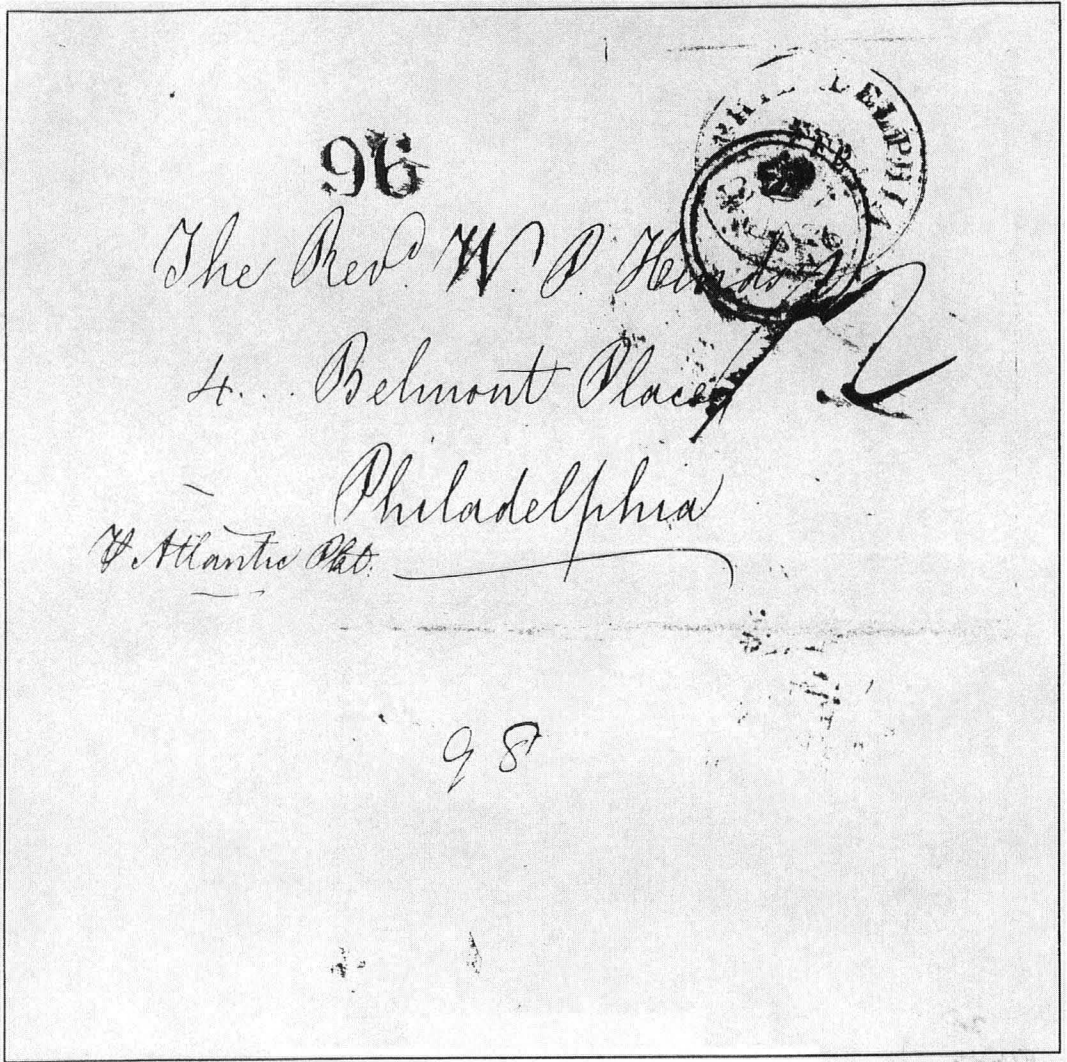 96
PHILADELPHIA
FEB
The Revd. W. P.
4... Belmont Place
Philadelphia
Atlantic
98